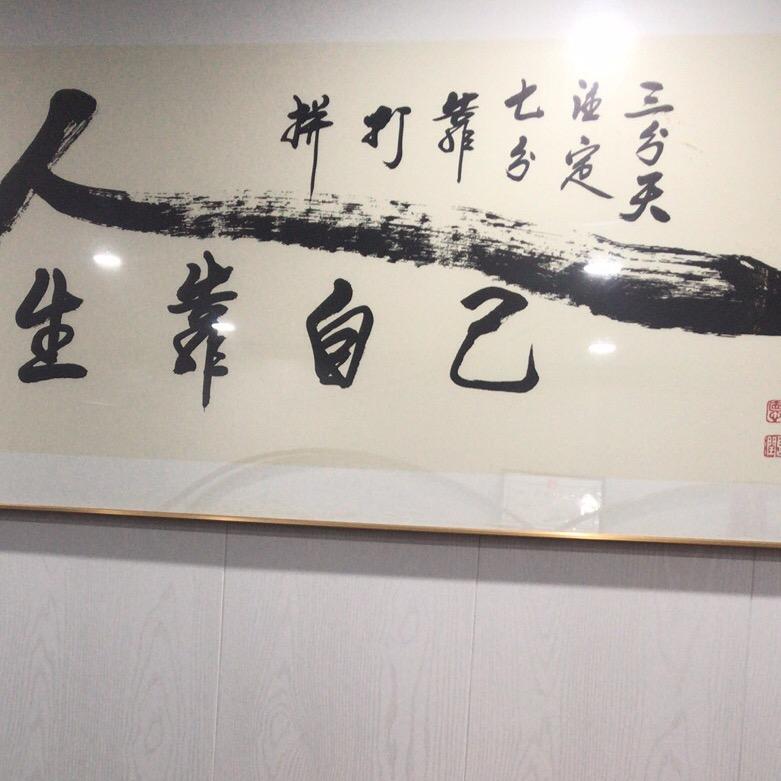 人生靠自己
三分天
注定
七分
靠
打
拼